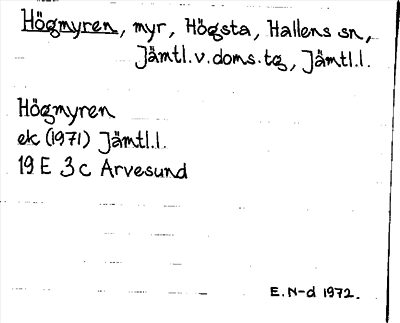 Högmyren, myr, Högsta, Hallens sn,
Jämtl.v.doms.tg, Jämtl.l.
Högmyren
ek (1971) Jämtl.l.
19 E 3 c Arvesund
E. N-d 1972.